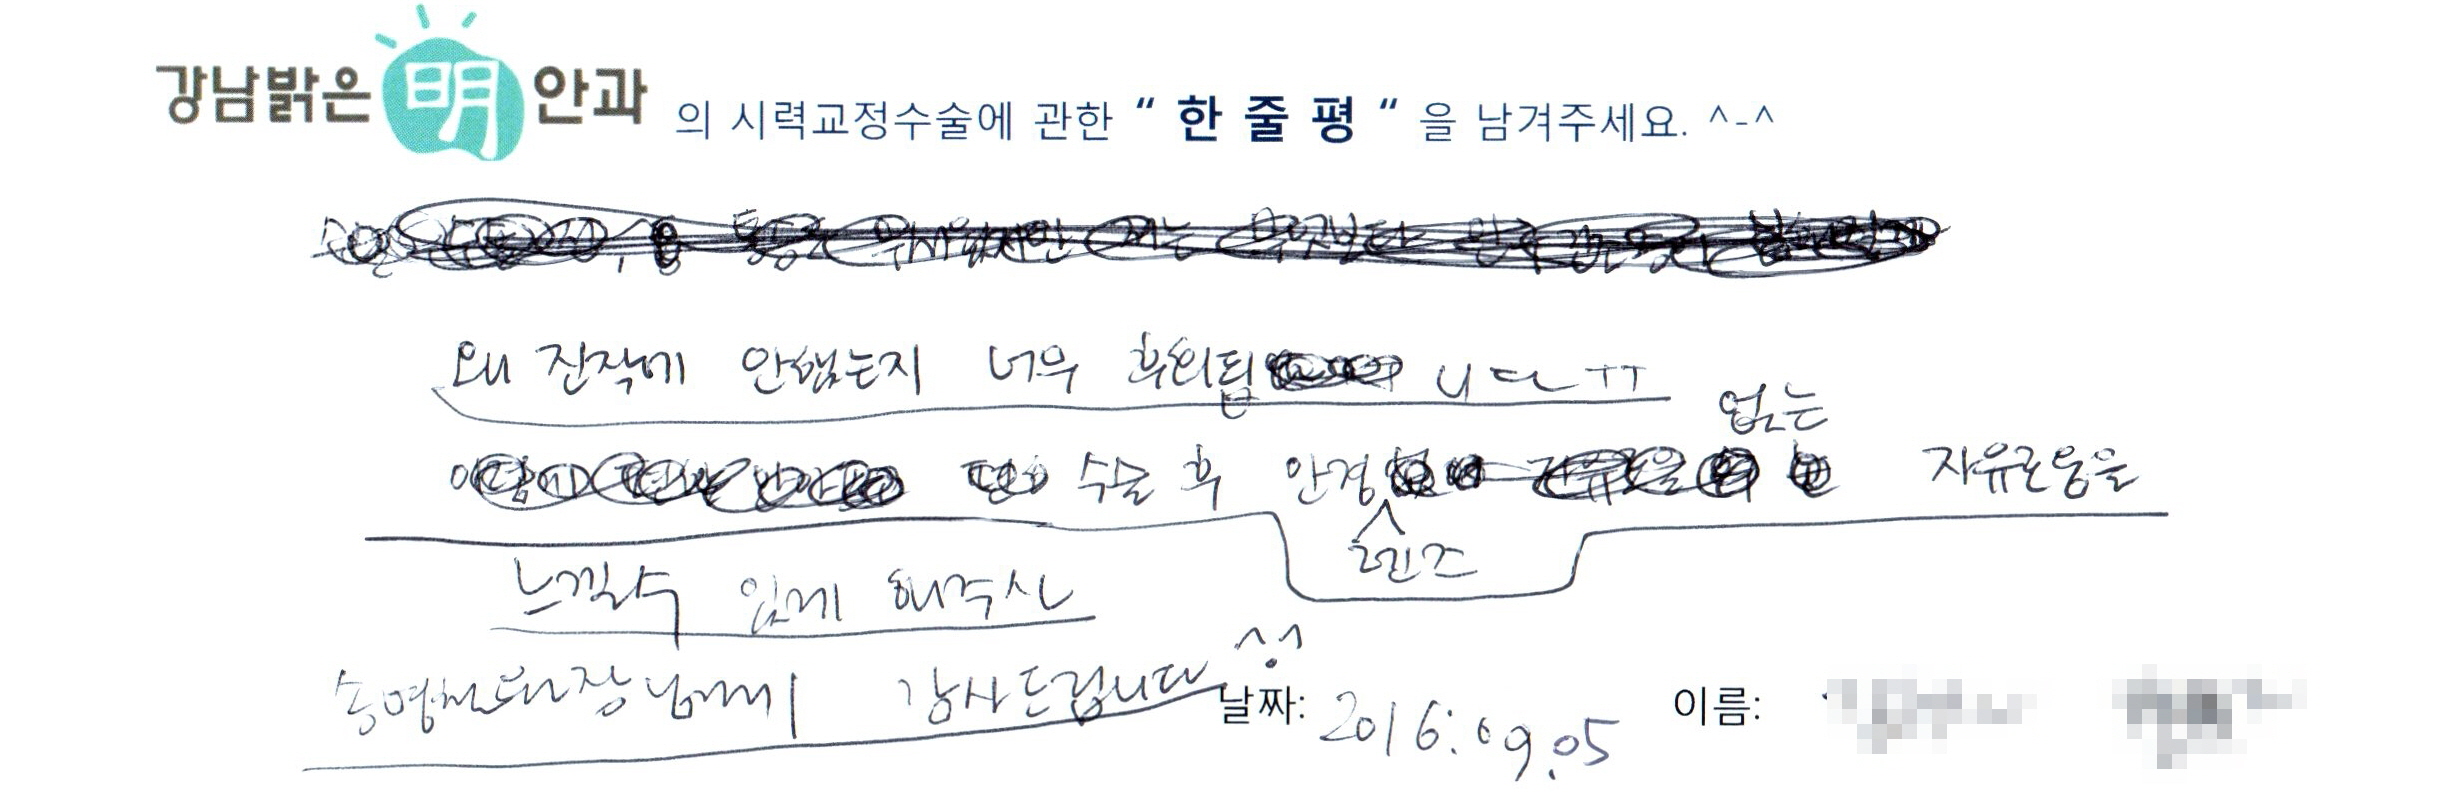 강남밝은 明 안과 의 시력교정수술에 관한 “ 한 줄 평 “ 을 남겨주세요. ^-^
왜 진작에 안했는지 너무 후회됩 니다 ㅜㅜ
없는
수술 후 안경 자유로움을
렌즈
느낄수 있게 해주신
^.^
송명철 원장님께 감사드립니다
날짜: 2016.09.05 이름: